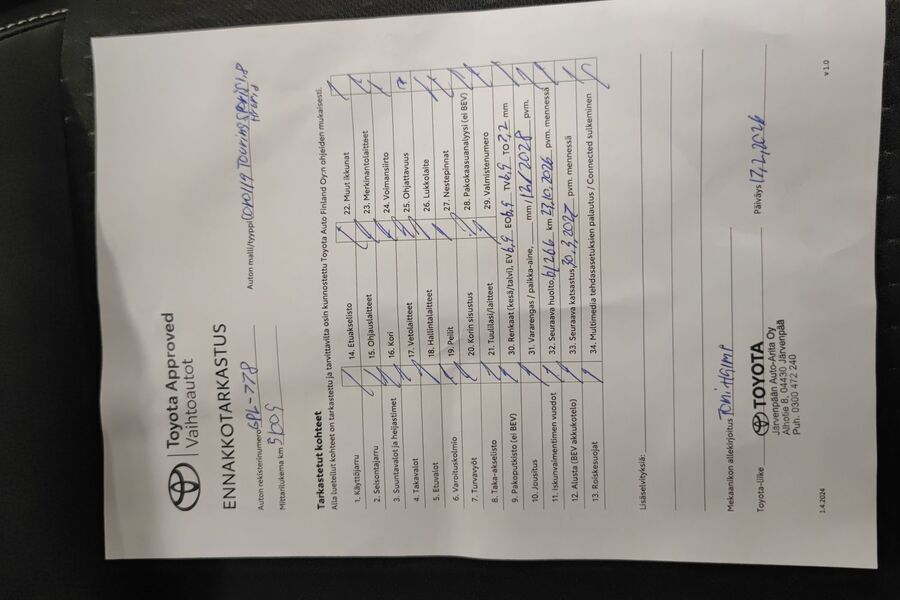 Toyota Approved
Vaihtoautot
ENNAKKOTARKASTUS
Auton rekisterinumero GPL-778 Auton malli/tyyppi Corolla Touring Sports 1,8
Hybrid
Mittarilukema km
Tarkastetut kohteet
Alla luetellut kohteet on tarkastettu ja tarvittavilta osin kunnostettu Toyota Auto Finland Oy:n ohjeiden mukaisesti.
1. Käyttöjarru
2. Seisontajarru
3. Suuntavalot ja heijastimet
4. Takavalot
5. Etuvalot
6. Varoituskolmio
7. Turvavyöt
8. Taka-akselisto
9. Pakoputkisto (ei BEV)
10. Jousitus
11. Iskunvaimentimen vuodot
12. Alusta (BEV akkukotelo)
13. Roiskesuojat
14. Etuakselisto
15. Ohjauslaitteet
16. Kori
17. Vetolaitteet
18. Hallintalaitteet
19. Peilit
20. Korin sisustus
21. Tuulilasi/laitteet
22. Muut ikkunat
23. Merkinantolaitteet
24. Voimansiirto
25. Ohjattavuus
26. Lukkolaite
27. Nestepinnat
28. Pakokaasuanalyysi (ei BEV)
29. Valmistenumero
30. Renkaat (kesä/talvi), EV 6,9 EO 6,9 TV 6,9 TO 7,2 mm
31. Vararengas / paikka-aine, mm / 12.2028 pvm.
32. Seuraava huolto, km 27.10.2026 pvm. mennessä
33. Seuraava katsastus, 30.3.2027 pvm. mennessä
34. Multimedia tehdasasetuksien palautus / Connected sulkeminen
Lisäselvityksiä:
Mekaanikon allekirjoitus Toni
Toyota-liike TOYOTA Päiväys 17.2.2026
Järvenpään Auto-Arita Oy
Alhotie 8, 04430 Järvenpää
Puh. 0300 472 240
1.4.2024 v 1.0